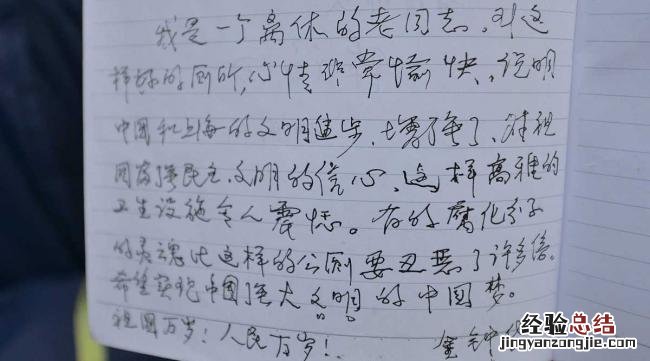 我是一个离休的老同志,对这
样好的厕所,心情非常愉快,说明
中国和上海的文明进步,增强了建祖
国富强民主、文明的信心,这样高雅的
卫生设施令人震惊。有的腐化分子
的灵魂比这样的公厕要丑恶了许多倍。
希望实现中国强大文明的中国梦。
祖国万岁!人民万岁!
金钟
经验总结
www.jingyanzongjie.com